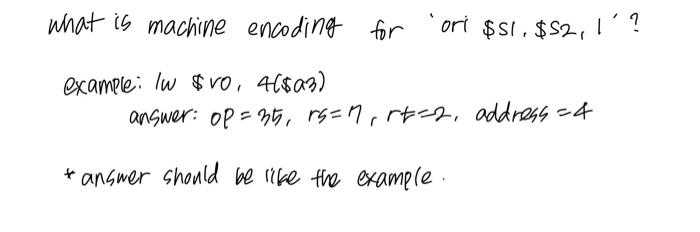 what is machine encoding for 'ori $s1, $s2, 1'?
example: lw $v0, 4($a3)
answer: op = 35, rs = 7, rt = 2, address = 4
* answer should be like the example.